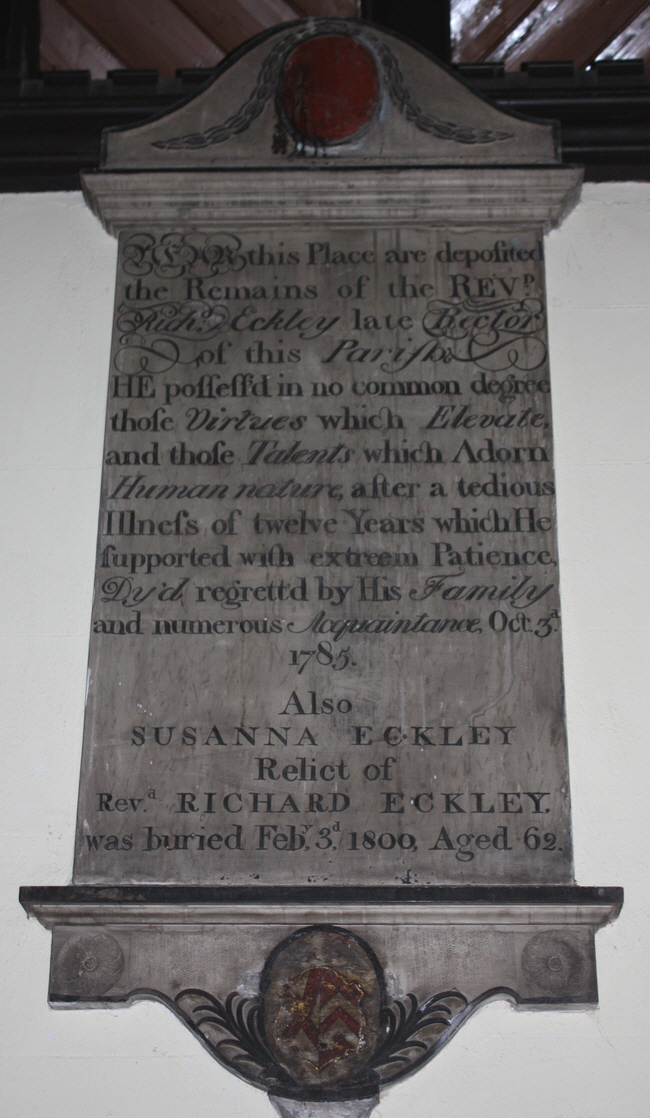 NEAR this Place are depoſited
the Remains of the REVD.
Richd. Eckley late Rector
of this Pariſh.
HE poſſeſſ'd in no common degree
thoſe Virtues which Elevate,
and thoſe Talents which Adorn
Human nature, after a tedious
Illneſs of twelve Years which He
ſupported with extreem Patience,
Dy'd, regrett'd by His Family
and numerous Acquaintance, Oct. 3d.
1785.
Also
SUSANNA ECKLEY
Relict of
Rev.d RICHARD ECKLEY.
was buried Feby. 3d. 1800, Aged 62.